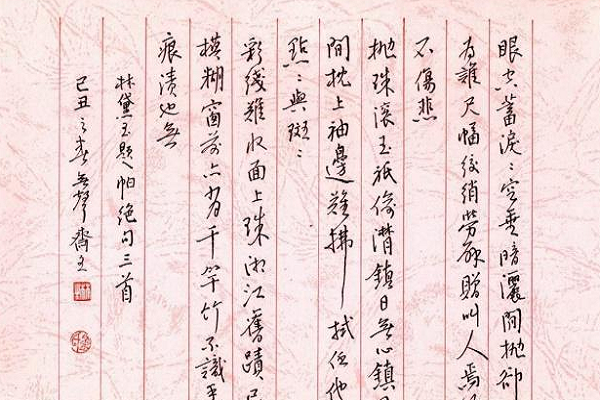 眼空蓄淚〻空垂暗灑閒抛卻
為誰尺幅鮫綃勞解贈叫人焉
不傷悲
抛珠滚玉祇偷潸鎮日無心鎮日
閒枕上袖邊難拂拭任他
點〻與斑〻
彩线難收面上珠湘江舊蹟已
模糊窗前亦有千竿竹不識香
痕漬也無
林黛玉題帕絕句三首
己丑之春無聲齋主